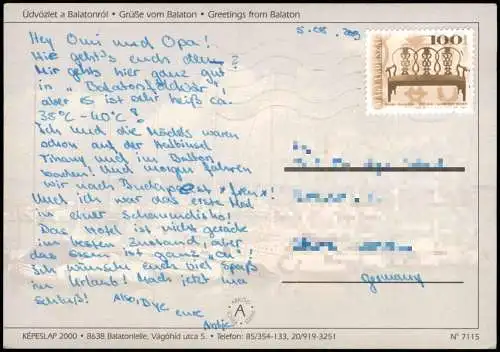 Üdvözlet a Balatonról • Grüße vom Balaton • Greetings from Balaton
5.08.
100
Hey Omi und Opa!
Wie geht's euch denn?
Mir gehts hier ganz gut
in "Balatonföldvár"!
aber es ist sehr heiß ca.
35°C - 40°C!
Ich und die Mädels waren
schon auf der Halbinsel
Tihany und im Balton
baden! Und morgen fahren
wir nach Budapest *freu*!
Und ich war das erste Mal
in einer Schaumdisko!
Das Hotel ist nicht gerade
im besten Zustand, aber
das Essen ist ganz "ok"!
Ich wünsche euch viel Spaß
im Urlaub! Mach jetzt ma
schluß! Also, Bye eure
Antje
Germany
A
KÉPESLAP 2000 • 8638 Balatonlelle, Vágóhíd utca 5. • Telefon: 85/354-133, 20/919-3251
N° 7115